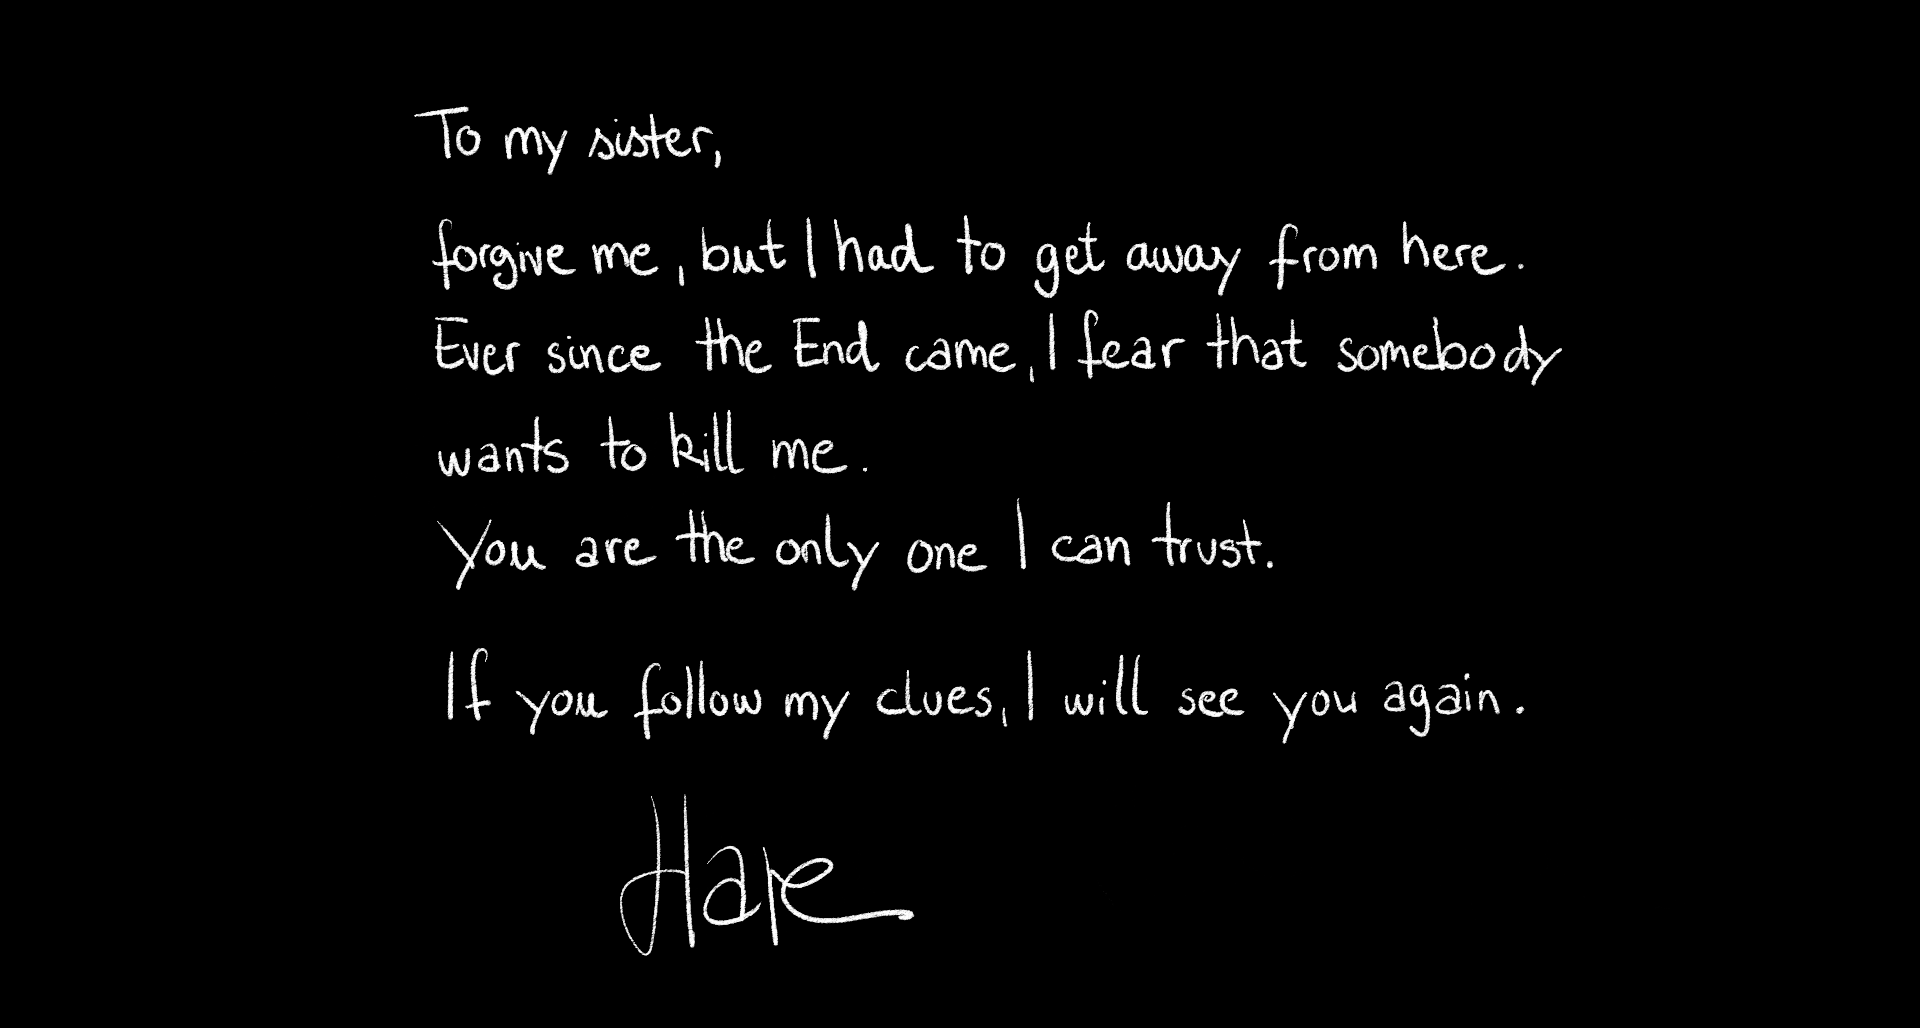 To my sister,
forgive me, but I had to get away from here.
Ever since the End came, I fear that somebody
wants to kill me.
You are the only one I can trust.
If you follow my clues, I will see you again.
Hare